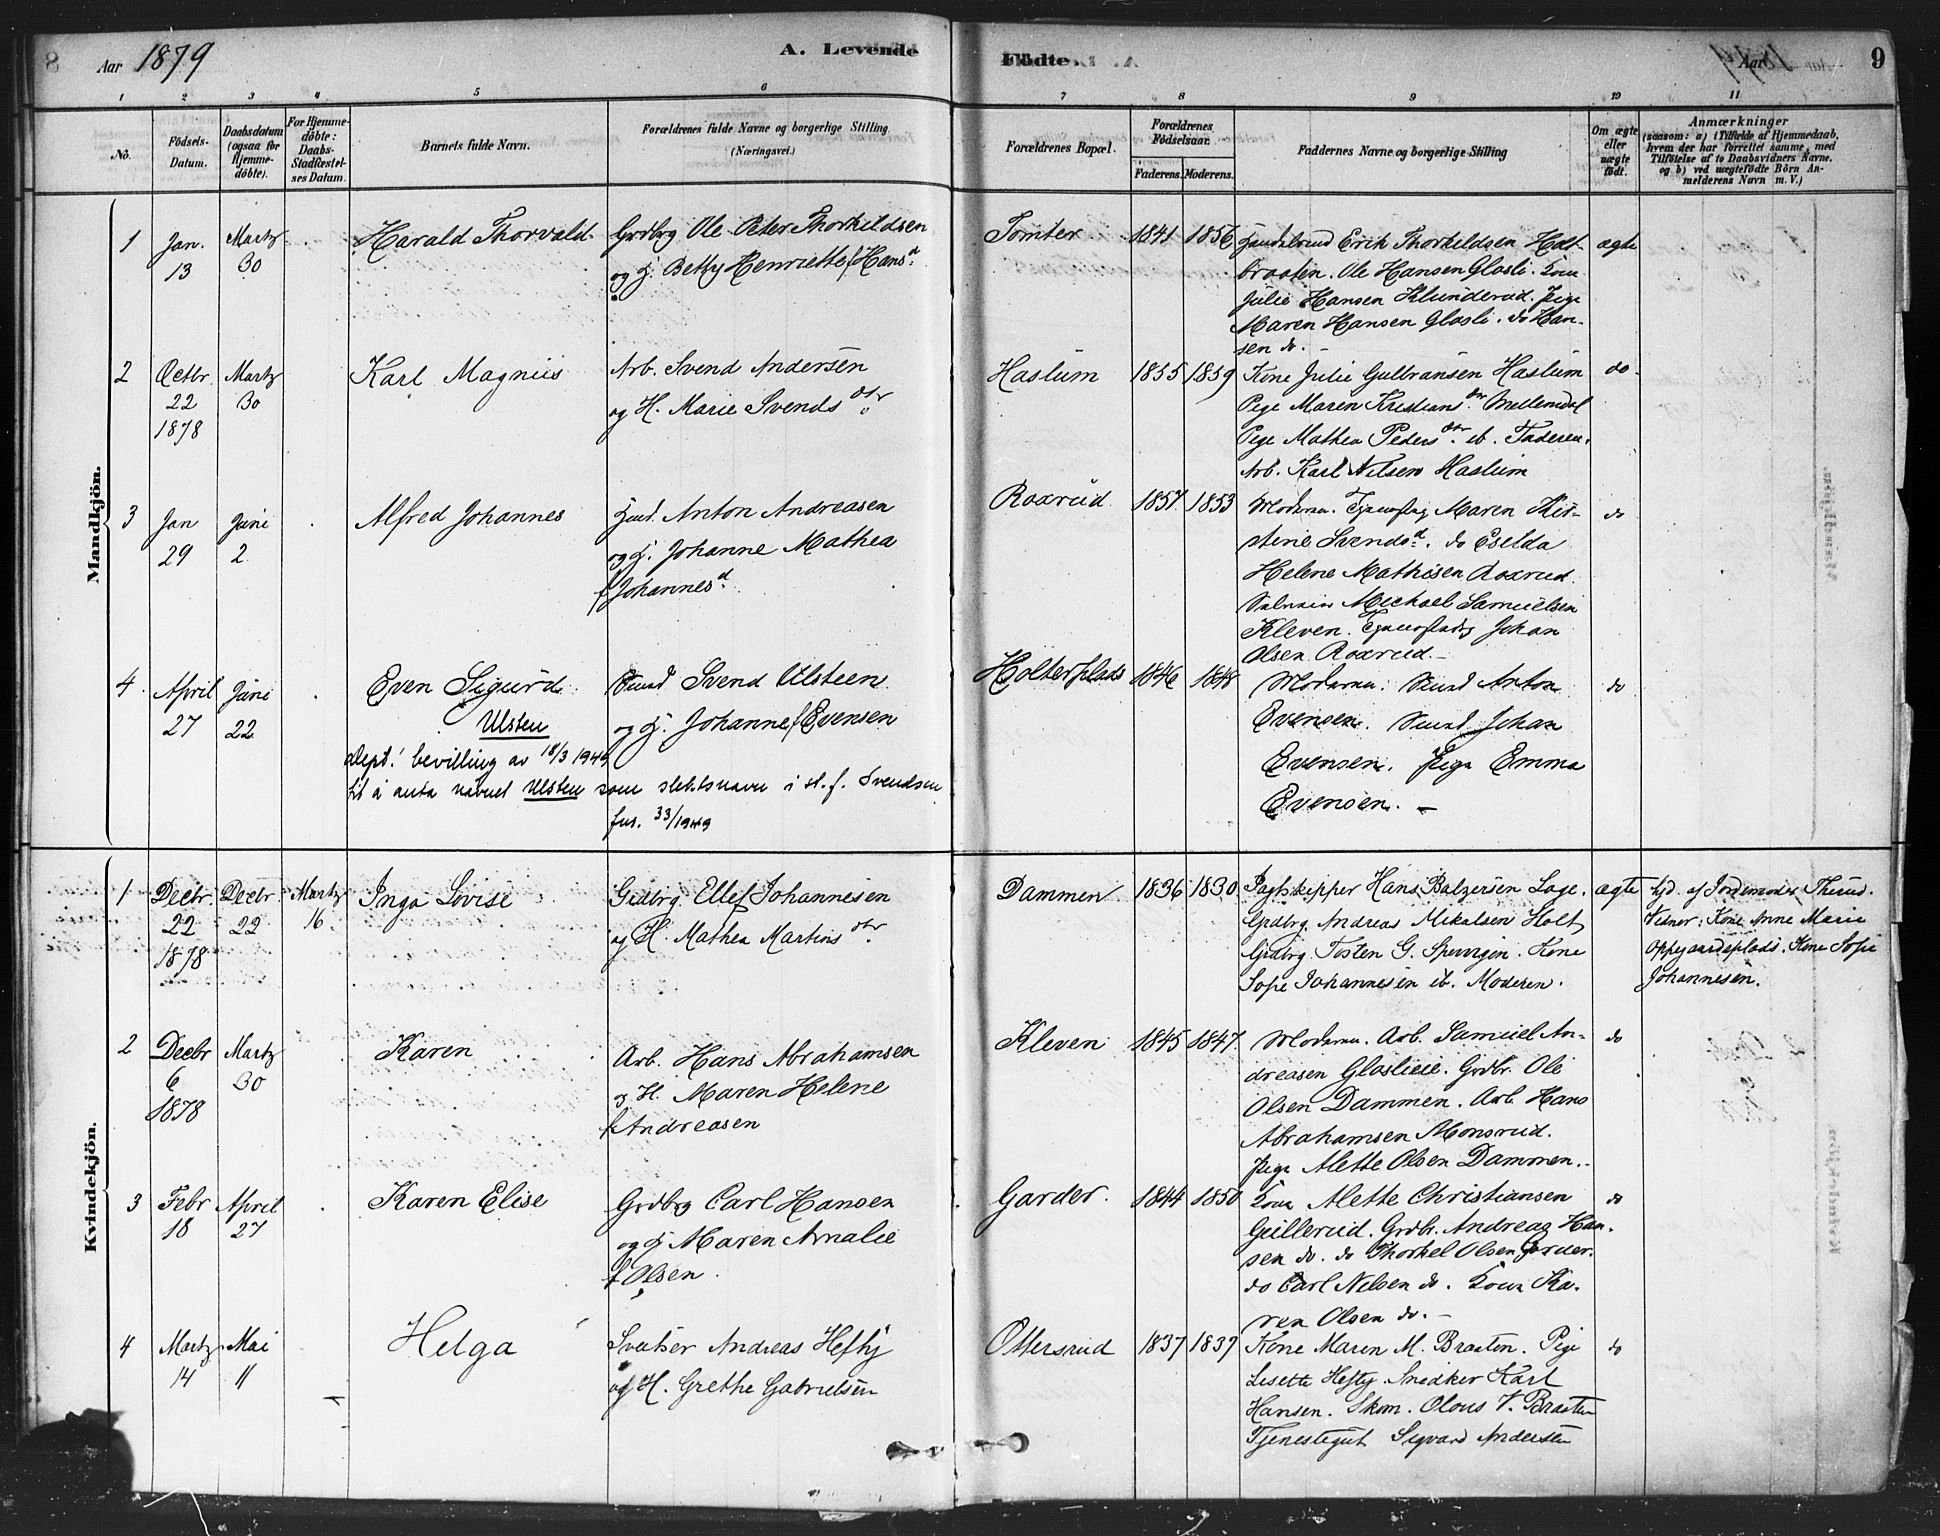 8 Aar 1879 A. Levende
Födte. Aar 9
1 2 3 4 5 6 7 8 9 10 11
No. Födsels-Datum. Daabsdatum (ogsaa for Hjemme-döbte). For Hjemme-döbte: Daabs-Stadfæstel-ses Datum. Barnets fulde Navn. Forældrenes fulde Navne og borgerlige Stilling (Næringsvei.)
Forældrenes Bopæl. Forældrenes Födselsaar. Faderens. Moderens. Faddernes Navne og borgerlige Stilling Om ægte eller uægte födt.
Anmærkninger
(saasom: a) i Tilfælde af Hjemmedaab,
hvem der har forrettet samme, med
Tilföielse af to Daabsvidners Navne.
og b) ved uægtefödte Börn An-
melderens Navn m. V.)
Mandkjön.
1 Jan. 13 Martz 30 Harald Thorvald
Grdbrg Ole Peter Thorkildsen
og H. Betzy Henriette f Hansd
Tomter 1841 1856
Erik Thorkildsen Holt-
braaten. Ole Hansen Glosli. Kone
Julie Hansen Klunderud. Pige
Maren Hansen Glosli. do Han-
sen do. –
ægte
2 Octbr. 22 1878 Martz 30 Karl Magnus
Arb. Svend Andersen
og H. Marie Svendsdtr
Haslum 1855 1859
Kone Julie Gulbransen Haslum
Pige Maren Kristiansdtr Mellemdal
Pige Mathea Pedersdtr. ib. Faderen.
Arb. Karl Nilsen Haslum
do
3 Jan 29 Juni 2 Alfred Johannes
Anton Andreasen
og H. Johanne Mathea
f Johannesd
Roxrud 1857 1853
Moderen. Maren Kir-
stine Svendsd. do Eselda
Helene Mathisen Roxrud.
Michael Samuelsen
Kleven. Johan
Olsen Roxrud –
do
4. April 27 Juni 22 Even Sigurd
Ulsten
Svend Ulsteen
og H. Johanne f Evensen
Dept! bevilling av 18/3 1949
til å anta navnet Ulsten som slektsnavn i st. f. Svendsen
jnr. 33/1949
Holterplads 1846 1848
Moderen. Anton
Evensen. Johan
Evensen. Pige Emma
Evensen. –
do
Kvindekjön.
1 Decbr 22 1878 Decbr 22 Martz 16 Inga Lovise
Grdbrg. Ellef Johannesen
og H. Mathea Martinsdtr.
Dammen 1836 1830
Jagtskipper Hans Balzersen Lage.
Grdbrg. Andreas Mikalsen Holt
Grdbrg Tosten G. Spervigen. Kone
Sofie Johannesen ib. Moderen.
ægte
Hjd. af Jordemoder Thrud.
Vidner: Kone Anne Marie
Oppegaardsplads. Kone Sofie
Johannesen.
2 Decbr 6 1878 Martz 30 Karen
Arb. Hans Abrahamsen
og H. Maren Helene
f Andreasen
Kleven 1845 1847.
Moderen. Arb. Samuel An-
dreasen Gloslieie. Grdbr. Ole
Olsen Dammen. Arb. Hans
Abrahamsen Monsrud.
Pige Alette Olsen Dammen.
do
3 Febr 18 April 27 Karen Elise
Grdbrg Carl Hansen
og H Maren Amalie
f Olsen.
Garder. 1844 1850
Kone Alette Christiansen
Gullerud. Grdbr. Andreas Han-
sen do. do Thorkel Olsen Garder.
do Carl Nelsen do. Kone Ka-
ren Olsen do. –
do
4 Martz 14 Mai 11 Helga
Andreas Hefty
og H. Grethe Gabrielsen
Ottersrud 1837 1837
Kone Maren M. Braaten. Pige
Lisette Hefty. Snedker Karl
Hansen. Skom. Olous V. Braaten
Tjenestegut Sigvard Andersen
do